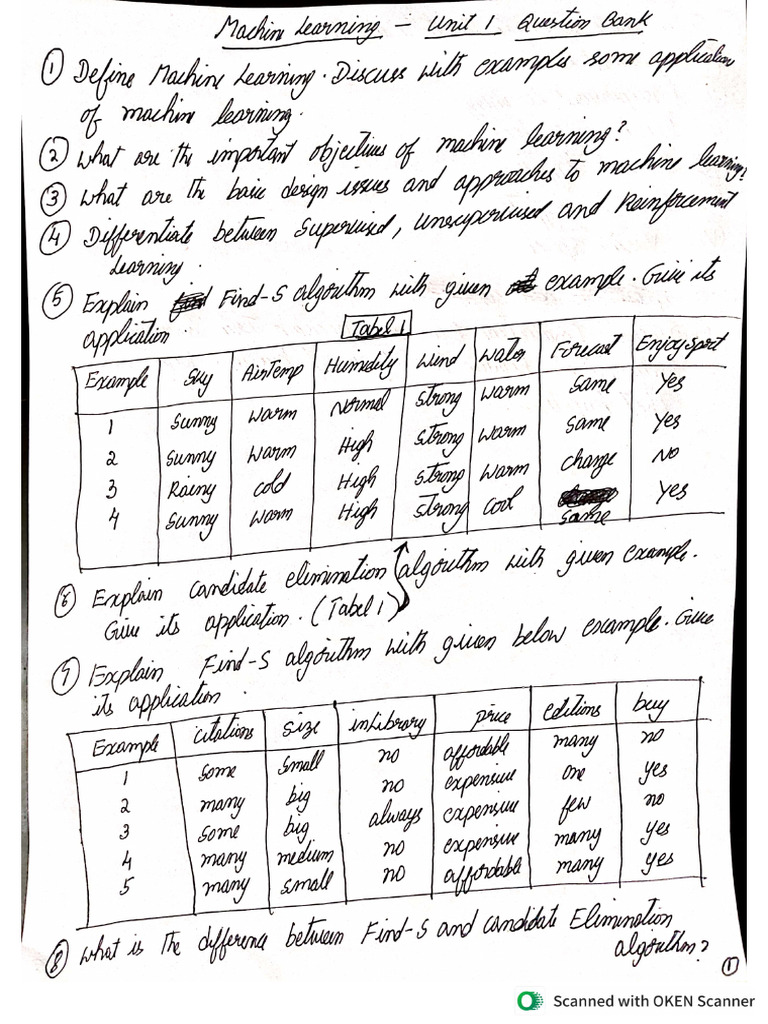 Machine Learning – Unit 1 Question Bank
① Define Machine Learning. Discuss with examples some application
of machine learning.
② What are the important objectives of machine learning?
③ What are the basic design issues and approaches to machine learning?
④ Differentiate between Supervised, Unsupervised and Reinforcement
Learning.
⑤ Explain Find-S algorithm with given example. Give its
application
Tabel 1
Example Sky AirTemp Humidity Wind Water Forecast Enjoysport
1 Sunny warm Normal strong warm same Yes
2 Sunny warm High strong warm same Yes
3 Rainy cold High strong warm change No
4 Sunny warm High strong cool same Yes
⑥ Explain candidate elimination algorithm with given example.
Give its application. (Tabel 1)
⑦ Explain Find-S algorithm with given below example. Give
its application.
Example citations size inLibrary price editions buy
1 some small no affordable many no
2 many big no expensive one yes
3 some big always expensive few no
4 many medium no expensive many yes
5 many small no affordable many yes
⑧ What is the difference between Find-S and candidate Elimination
algorithm?
①
Scanned with OKEN Scanner